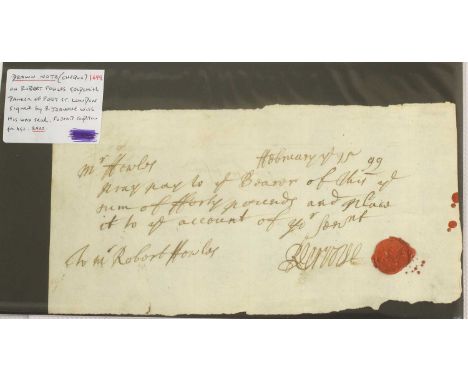 DRAWN NOTE (CHEQUE) 1699
ON ROBERT FOWLES GOLDSMITH
BANKER OF FLEET ST. LONDON
SIGNED BY WITH
HIS WAX SEAL.
FOR
Mr Fowles February ye 15 99
Pray pay to ye Bearer of this ye
sum of forty pounds and place
it to ye account of yor servnt
To Mr Robert Fowles